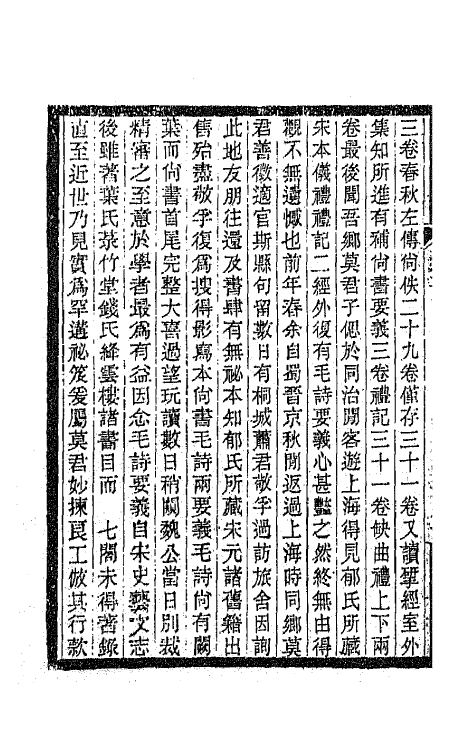 三卷春秋左傳尙佚二十九卷僅存三十一卷又讀揅經室外
集知所進有補尙書要義三卷禮記三十一卷缺曲禮上下兩
卷最後聞吾鄉莫君子偲於同治閒客遊上海得見郁氏所藏
宋本儀禮禮記二經外復有毛詩要義心甚豔之然終無由得
觀不無遺憾也前年春余自蜀晉京秋閒返過上海時同鄉莫
君善徵適官斯縣句留數日有桐城蕭君敬孚過訪旅舍因詢
此地友朋往還及書肆有無祕本知郁氏所藏宋元諸舊籍出
售殆盡敬孚復爲搜得影寫本尙書毛詩兩要義毛詩尙有闕
葉而尙書首尾完整大喜過望玩讀數日稍闚魏公當日別裁
精審之至意於學者最爲有益因念毛詩要義自宋史藝文志
後雖著葉氏菉竹堂錢氏絳雲樓諸書目而　七閣未得著錄
直至近世乃見實爲罕遘祕笈爰屬莫君妙揀良工倣其行款